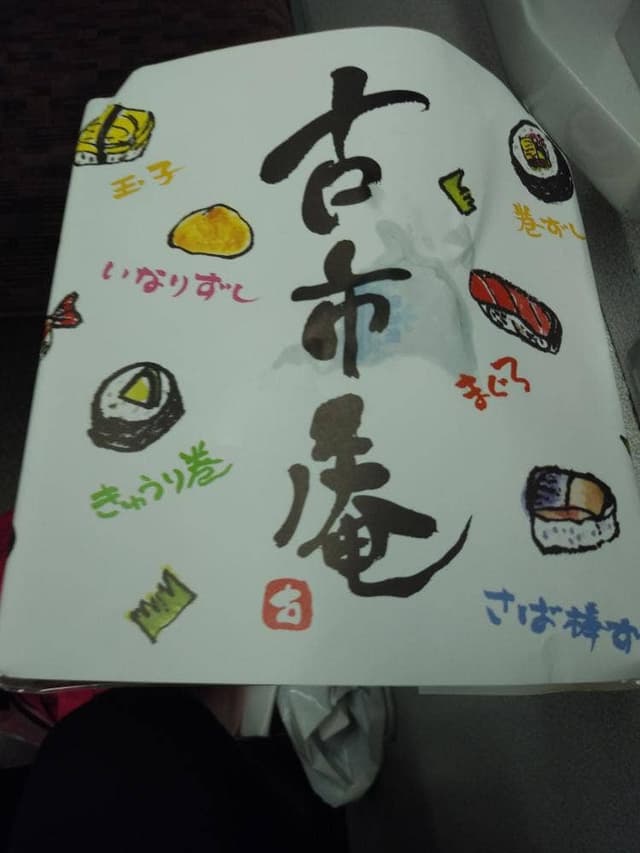 古市庵
玉子
いなりずし
きゅうり巻
巻ずし
まぐろ
さば棒ず
古